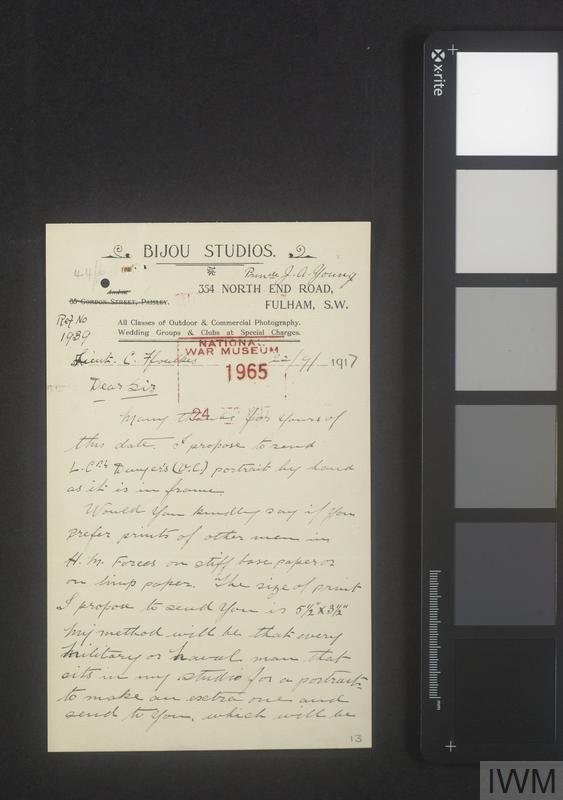 BIJOU STUDIOS.
44/6
J. A. Young
354 NORTH END ROAD,
FULHAM, S.W.
35 GORDON STREET, PAISLEY.
Ref No
1989
All Classes of Outdoor & Commercial Photography.
Wedding Groups & Clubs at Special Charges.
NATIONAL
WAR MUSEUM
1965
24
Lieut. C. Ffoulkes 22/9/1917
Dear Sir
Many thanks for yours of
this date. I propose to send
L.Cpl Dwyer's (V.C.) portrait by hand
as it is in frame
Would you kindly say if you
prefer prints of other men in
H.M. Forces on stiff base paper or
on limp paper. The size of print
I propose to send you is 5½"x3½"
My method will be that every
military or naval man that
sits in my studio for a portrait-
to make an extra one and
send to you, which will be
13
x-rite
mm
IWM